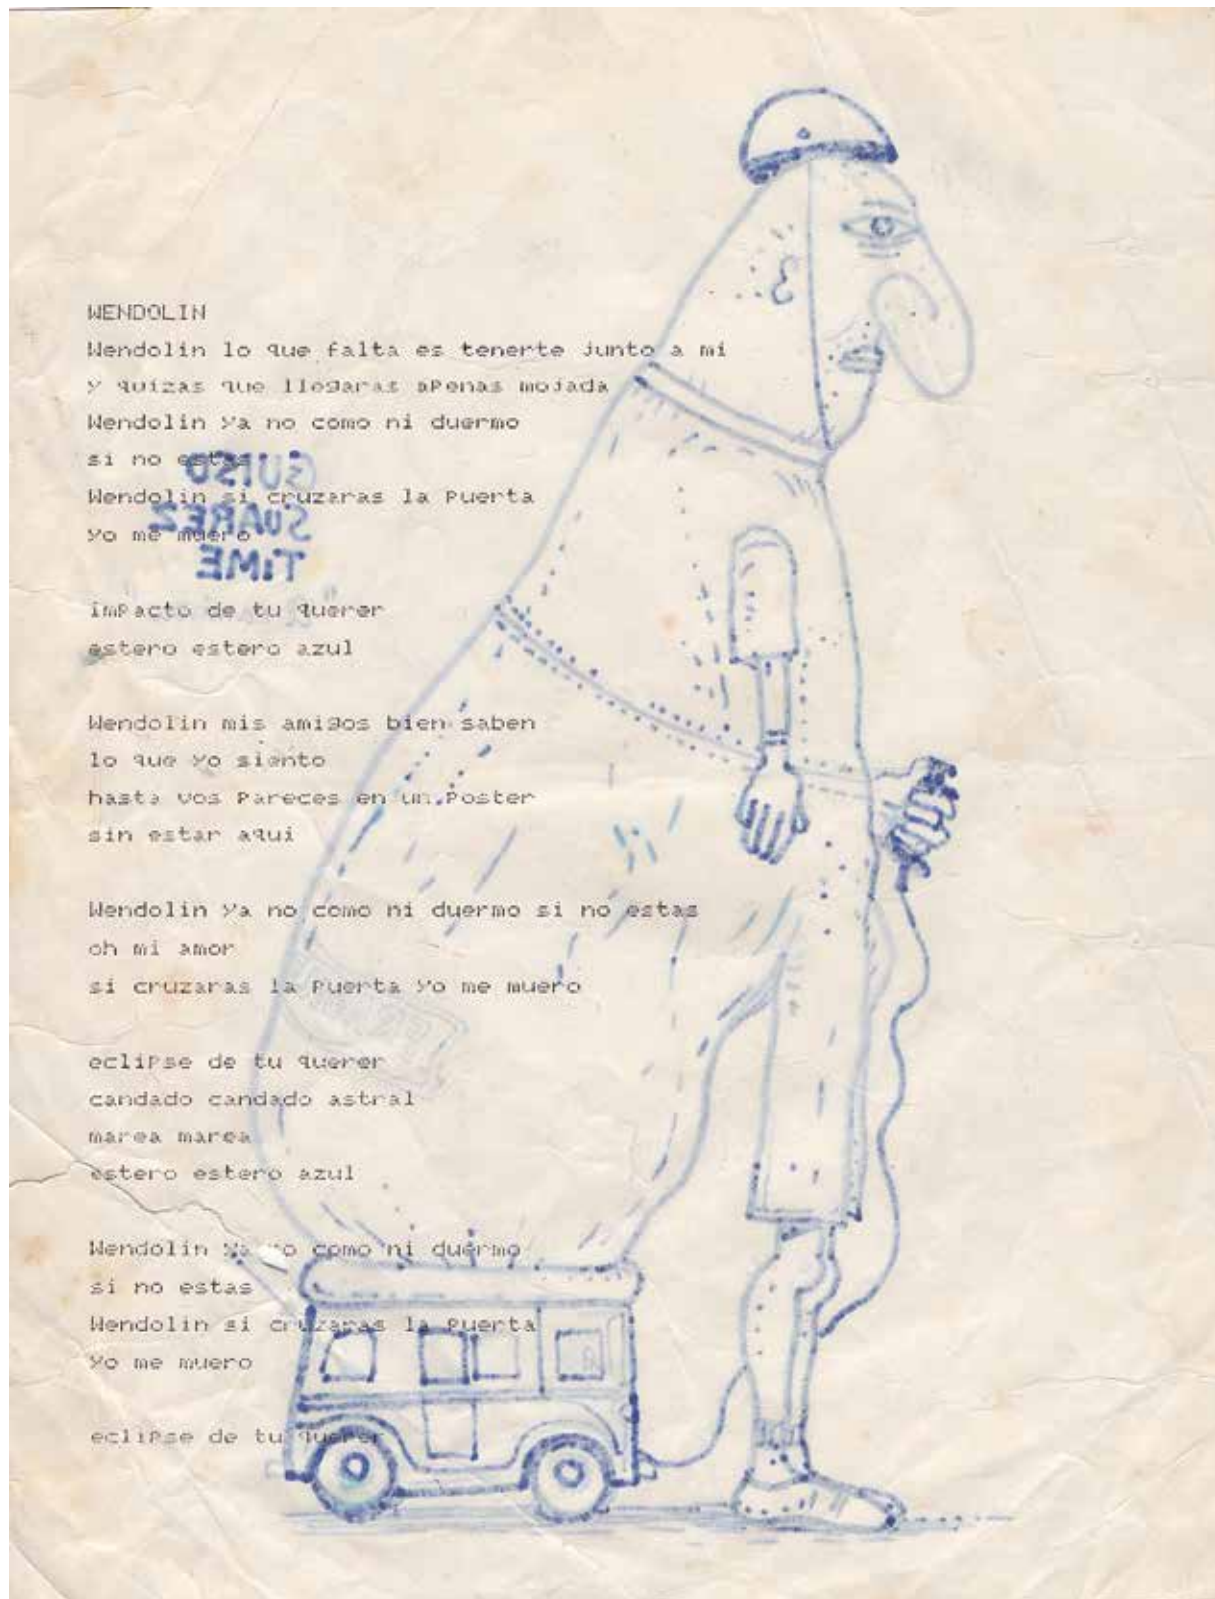 WENDOLIN
Wendolin lo que falta es tenerte junto a mi
y quizas que llegaras apenas mojada
Wendolin ya no como ni duermo
si no estas
Wendolin si cruzaras la puerta
yo me muero
GUISO
SUAREZ
TiME
impacto de tu querer
estero estero azul
Wendolin mis amigos bien saben
lo que yo siento
hasta vos pareces en un poster
sin estar aqui
Wendolin ya no como ni duermo si no estas
oh mi amor
si cruzaras la puerta yo me muero
eclipse de tu querer
candado candado astral
marea marea
estero estero azul
Wendolin ya no como ni duermo
si no estas
Wendolin si cruzaras la puerta
yo me muero
eclipse de tu querer